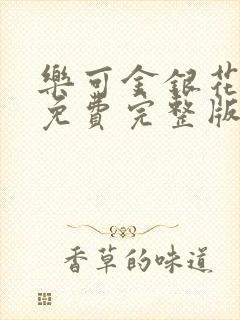 樂可金銀花
免費完整版
香草的味道